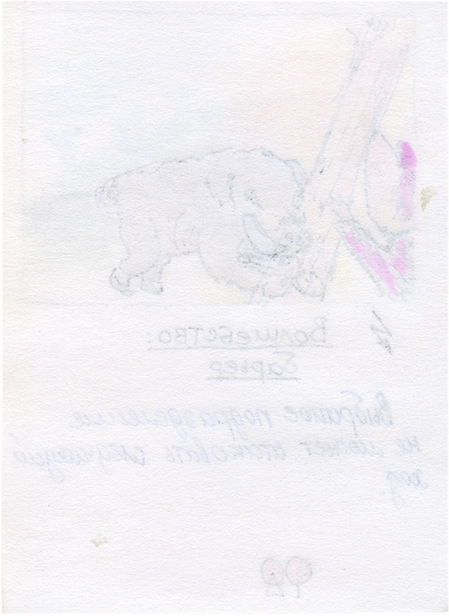 Волшебство:
Барьер
Выбраное подразделение
не может атаковать следующий
ход